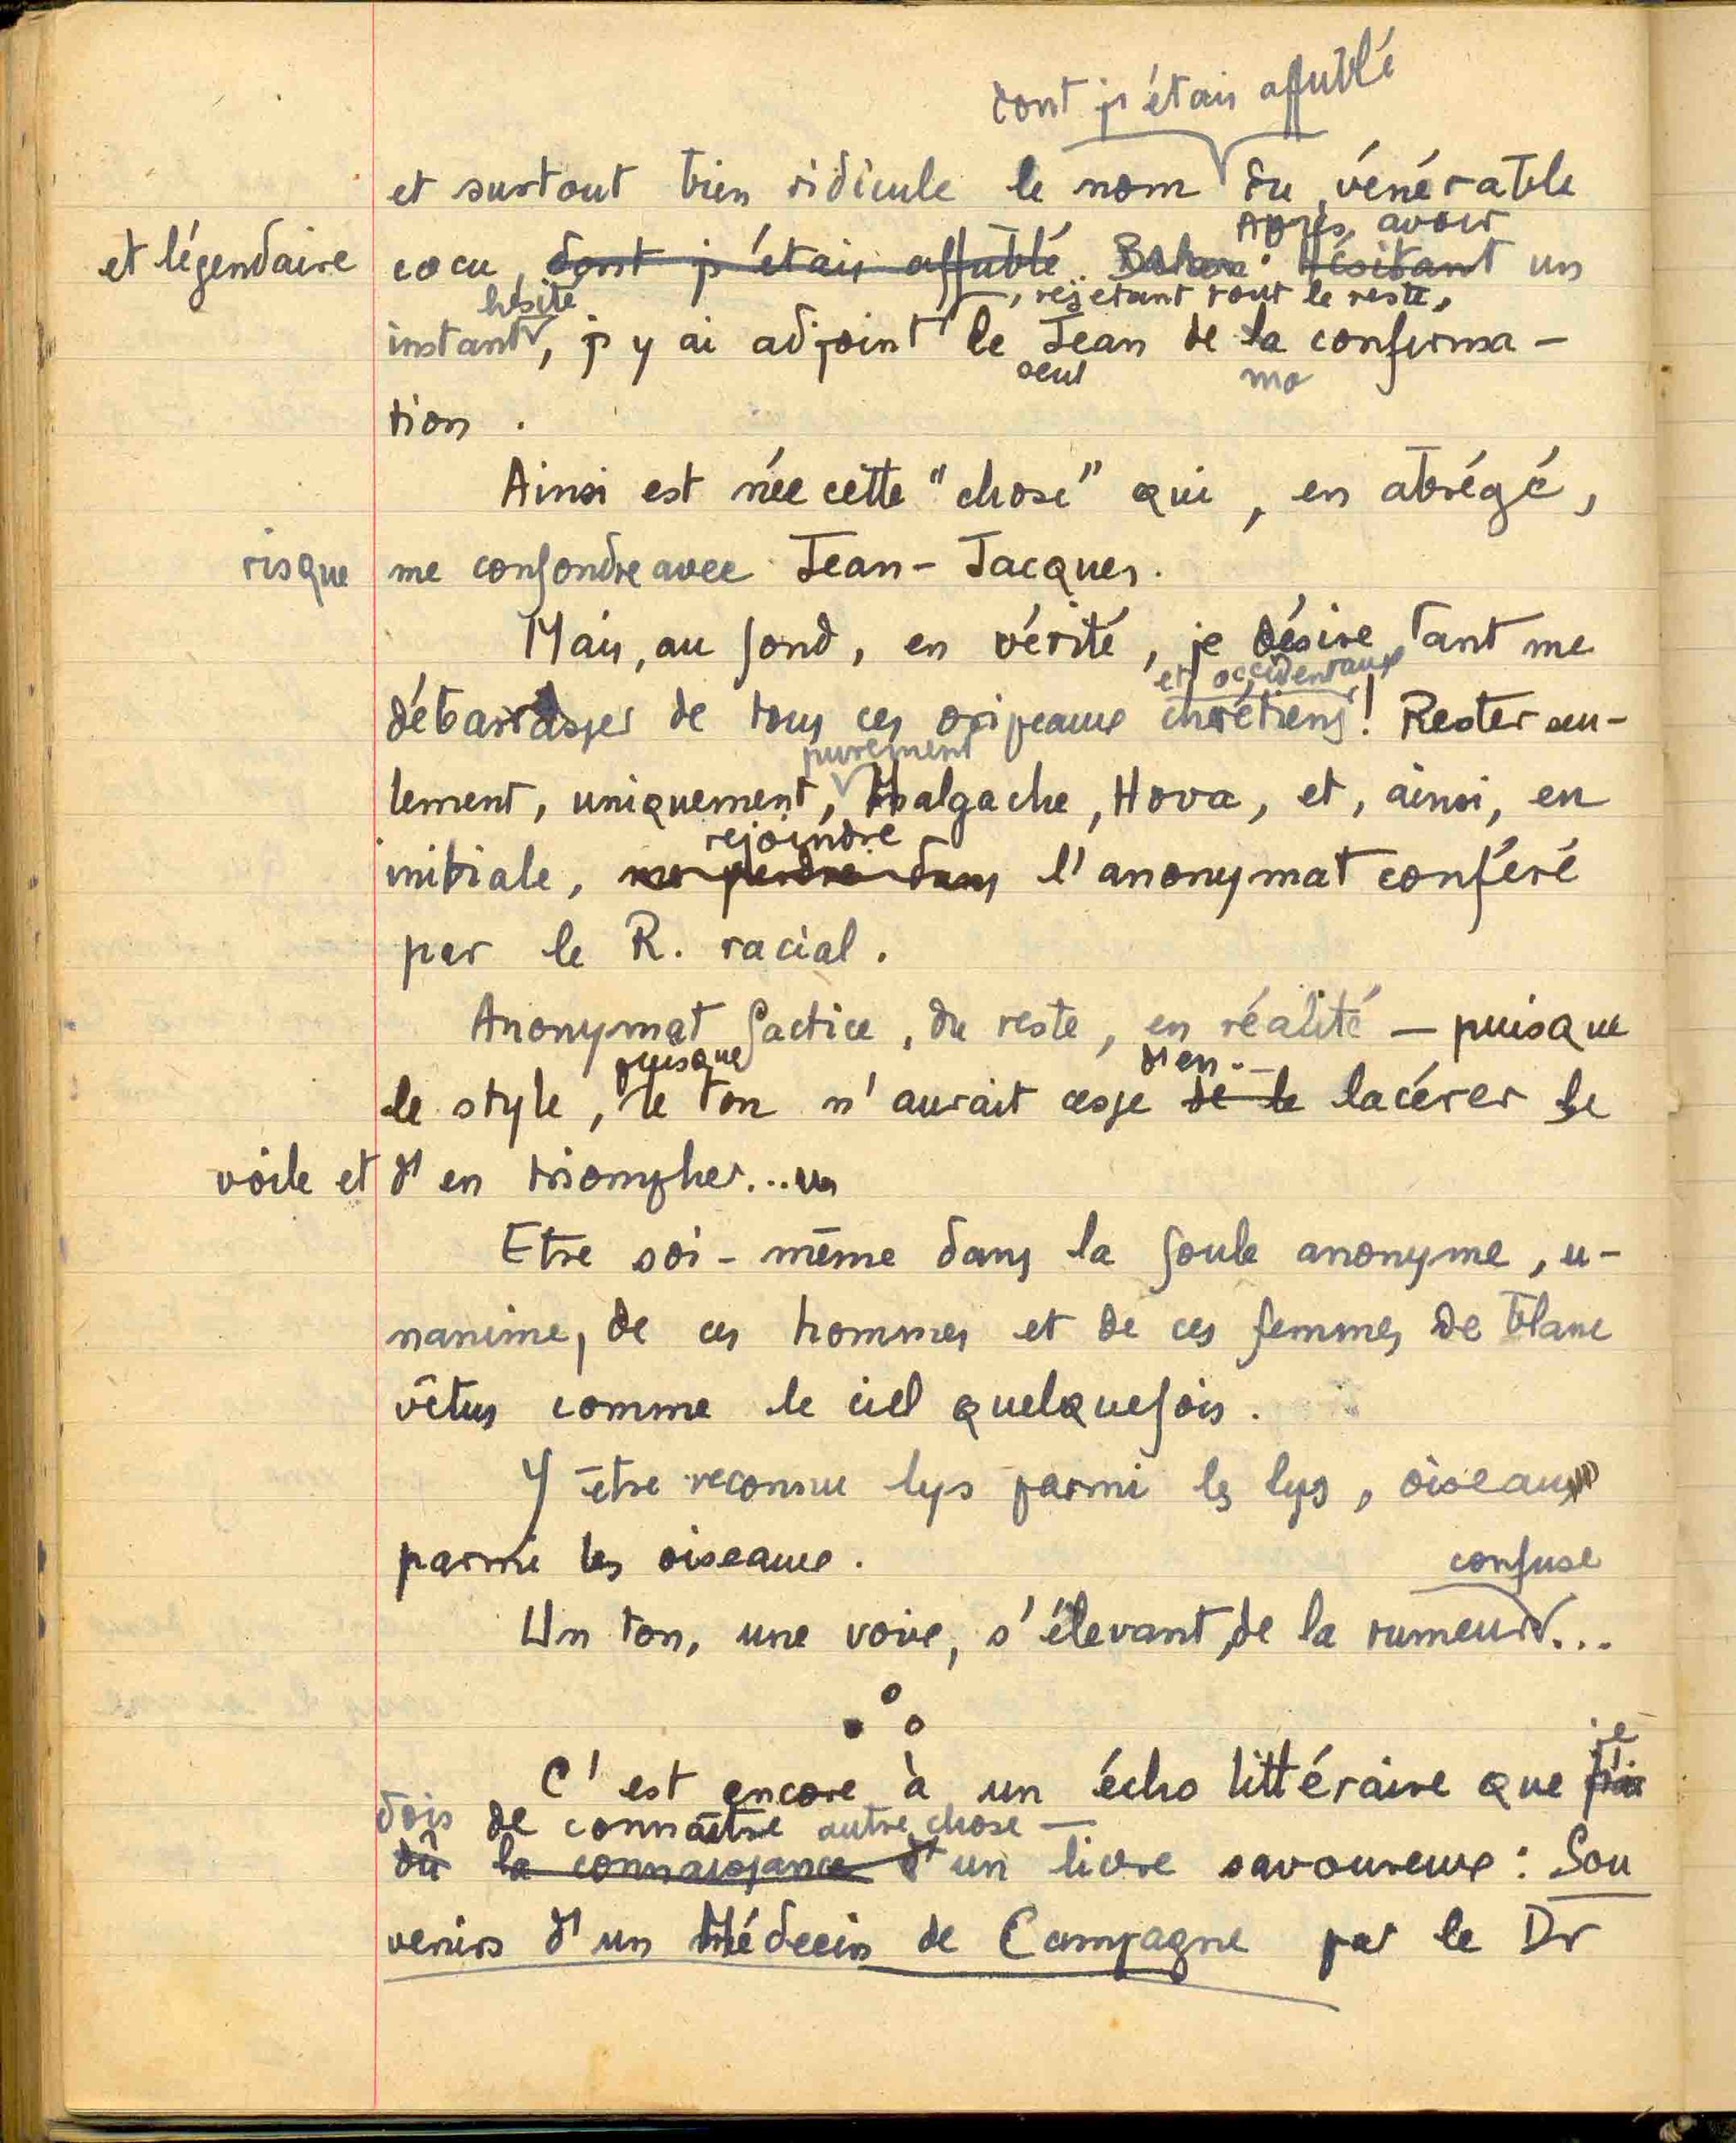 dont j'étais affublé
et surtout bien ridicule le nom du vénérable
Après avoir
et légendaire cocu, dont j'étais affublé. Hésitant un
hésité , rejetant tout le reste,
instant, j'y ai adjoint le Jean de la confirma-
seul ma
tion.
Ainsi est née cette "chose" qui, en abrégé,
risque me confondre avec Jean-Jacques.
Mais, au fond, en vérité, je désire tant me
et occidentaux
débarrasser de tous ces oripeaux chrétiens! Rester seu-
purement
lement, uniquement, Malgache, Hova, et, ainsi, en
rejoindre
initiale, me perdre dans l'anonymat conféré
par le R. racial.
Anonymat factice, du reste, en réalité — puisque
puisque d'en
le style, le ton n'aurait cesse de le lacérer le
voile et d'en triompher...
Etre soi-même dans la foule anonyme, u-
nanime, de ces hommes et de ces femmes de blanc
vêtus comme le ciel quelquefois.
Y être reconnu lys parmi les lys, oiseau
parmi les oiseaux.
confuse
Un ton, une voix, s'élevant, de la rumeur...
je
C'est encore à un écho littéraire que j'ai
dois de connaître autre chose —
dû la connaissance d'un livre savoureux : Sou
venirs d'un Médecin de Campagne par le Dr